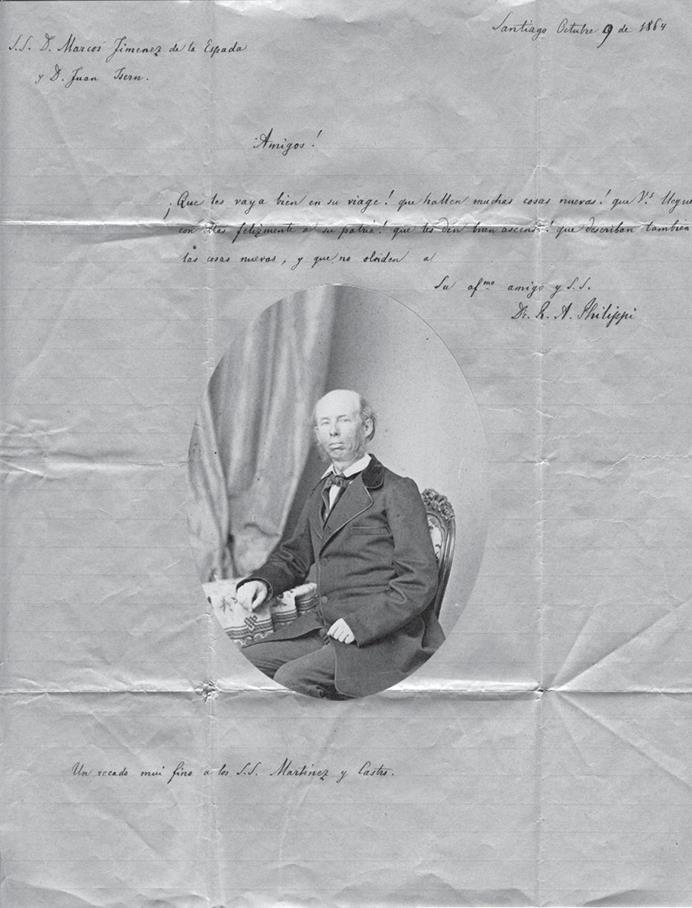 Santiago Octubre 9 de 1864
S.S. D. Marcos Jimenez de la Espada
y D. Juan Isern.
¡Amigos!
¡Que les vaya bien en su viage! que hallen muchas cosas nuevas! que Vs. llegue
con ellas felizmente a su patria! que les den buen ascenso! que describan tambien
las cosas nuevas, y que no olviden a
Su afmo amigo y S.S.
Dr. R. A. Philippi
Un recado mui fino a los S.S. Martinez y Castro.